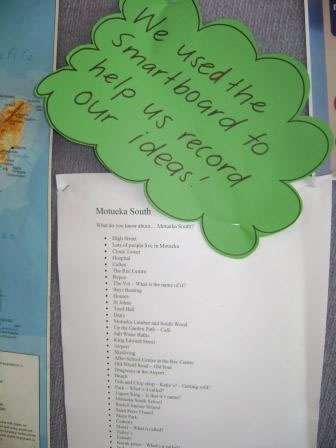 We used the
smartboard to
help us record
our ideas!
Motueka South
What do you know about... Motueka South?
High Street
Lots of people live in Motueka
Clock Tower
Hospital
Cafes
The Rec Centre
Repco
The Vet - What is the name of it?
Boys Boxing
Houses
St Johns
Toad Hall
Dairy
Motueka Lumber and South Wood
Up the Garden Path - Café
Salt Water Baths
King Edward Street
Airport
Skydiving
After School Centre at the Rec Centre
Old Wharf Road - Old boat
Dragracers at the Airport
Beach
Fish and Chip shop - Katie's? - Getting sold?
Park - What's it called?
Liquor King - Is that it's name?
Motueka South School
Parklands School
Saint Peter Chanel
Main Park
Cemetery
Motel - What is it called?
Talley's